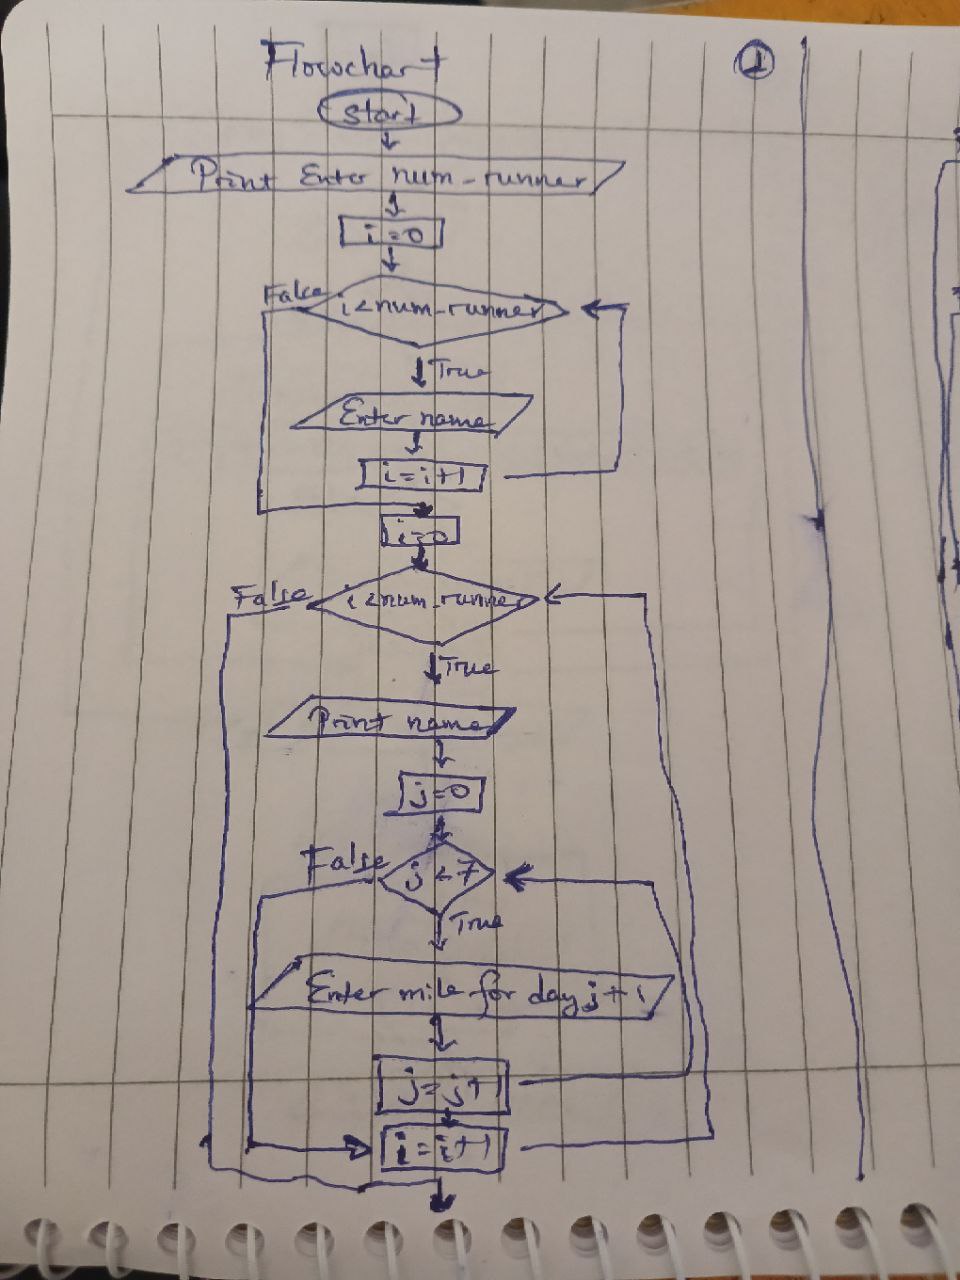 Flowchart
1
start
Print Enter num-runner
i=0
False
i<num-runner
True
Enter name
i=i+1
i=0
False
i<num-runner
True
Print name
j=0
False
j<7
True
Enter mile for day j+i
j=j+1
i=i+1